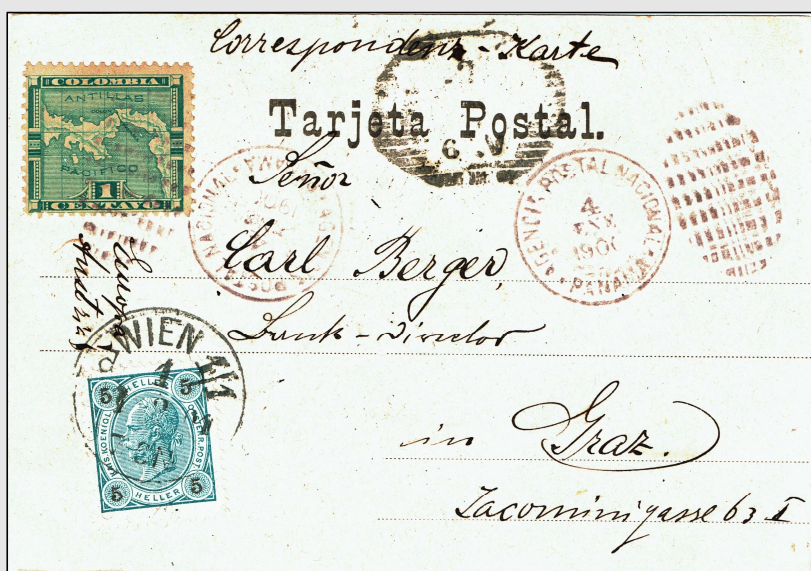 Correspondenz-Karte
COLOMBIA
ANTILLAS
PACIFICO
1
CENTAVO
Tarjeta Postal.
6
Señor
AGENCIA POSTAL NACIONAL
4
ENE
190
PANAMA
Carl Berger,
Bank-Director
Europa
Austria
WIEN 1/1
5 HELLER 5
KAIS. KOENIGL. OESTERR. POST
5 HELLER 5
in Graz.
Jacominigasse 63 I